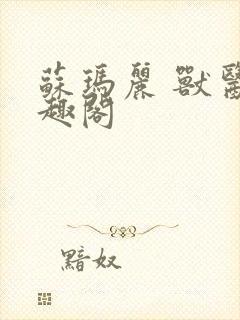 蘇瑪麗 獸醫
趣閣
黯奴